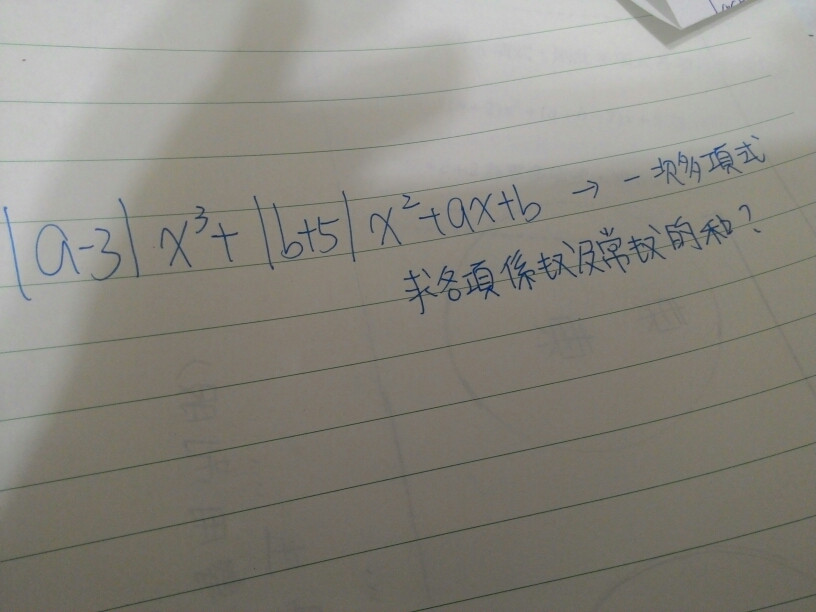 |a-3| x³+ |b+5| x²+ax+b → 一次多項式
求各項係数及常数的和?